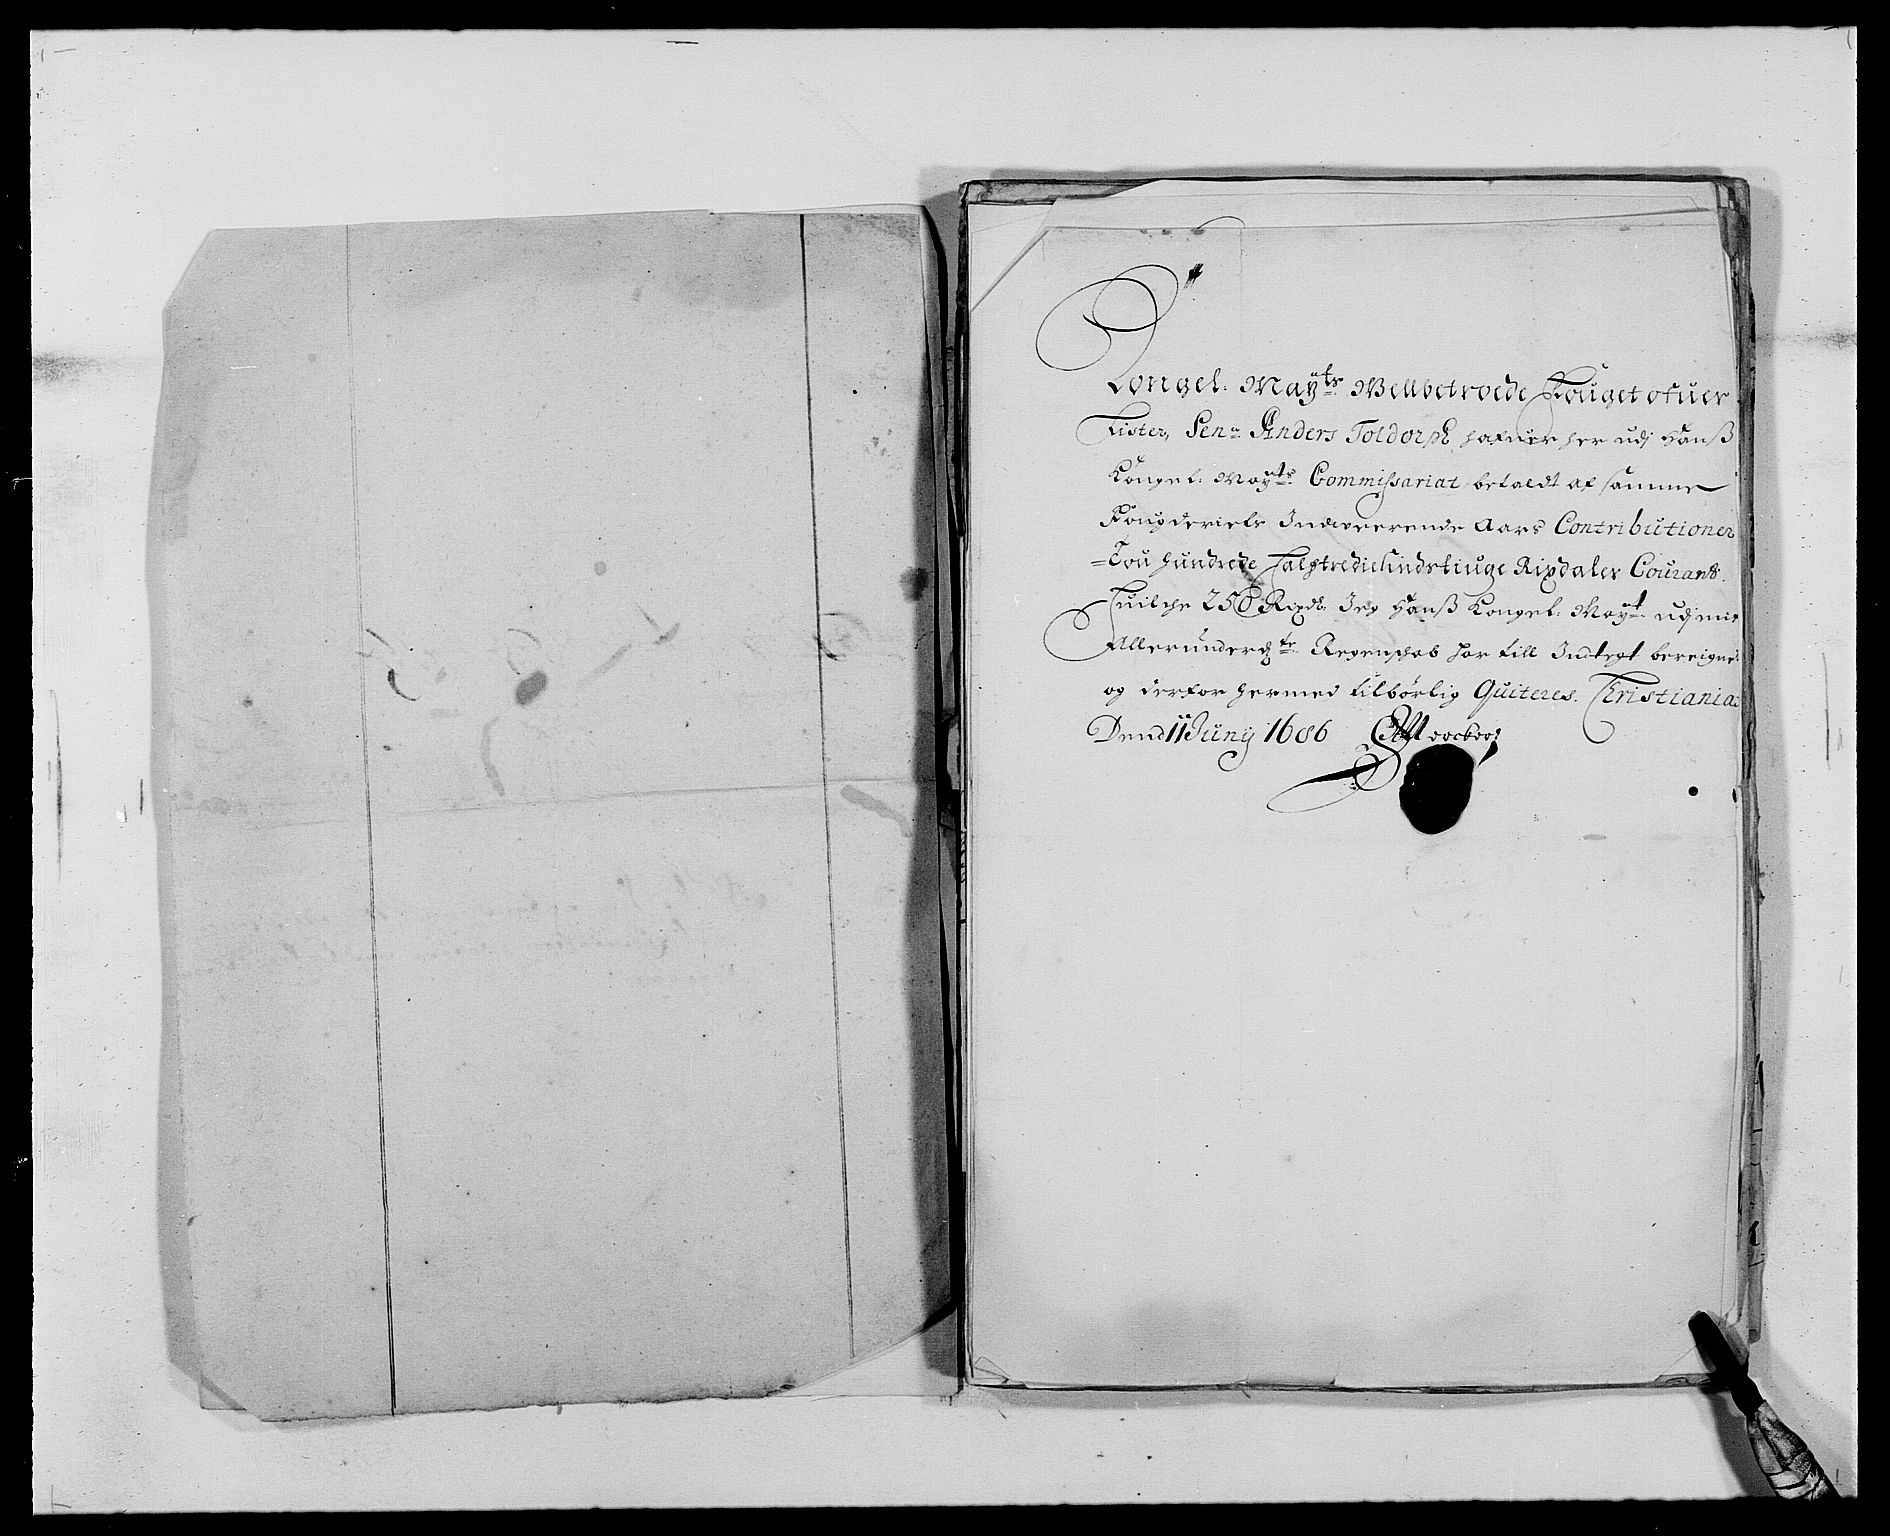 Kongel: Mayts Wellbetroede Fouget ofuer
Lister, Senr Anders Toldorph hafuer her udj Hanß
Kongel: Mayts Commissariat betaldt af samme
Fougderiets Indeverende Aars Contributioner
=Tou hundrede halftrediesindstiuge Rixdaler Courant.
huilche 250 Rixdr Jeg Hanß Kongel: Mayt udj mit
Allerunderdte Regenschab har till Indtegt bereignet
og derfor hermed tilbørlig Quiteres. Christiania
Dend 11 Juny 1686